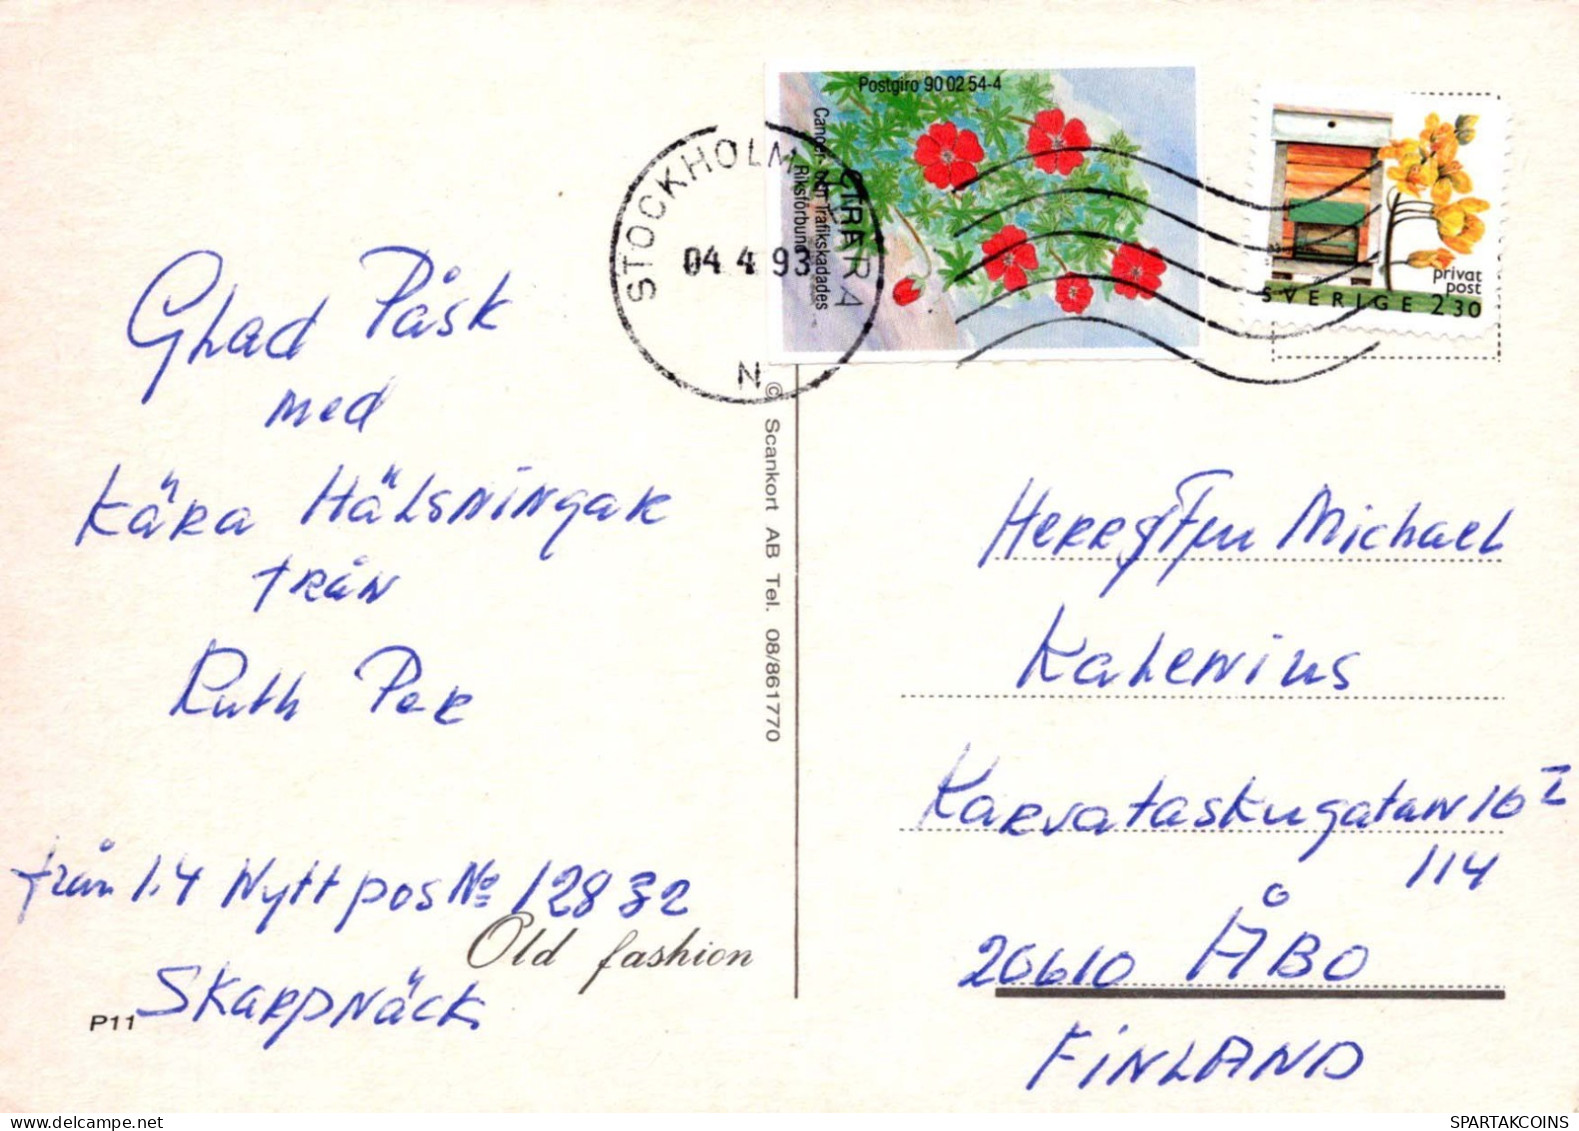 Postgiro 90 02 54-4
Cancer- och Trafikskadades
Riksförbund
STOCKHOLM
04.4.93
N
privat
post
SVERIGE 2.30
Glad Påsk
med
Kära Hälsningar
från
Ruth Per
från 1.4 Nytt pos № 12832
Skarpnäck
Old fashion
P11
© Scankort AB Tel. 08/861770
Herr & Fru Michael
Kalenius
Karvataskugatan 16 I
114
20610 ÅBO
FINLAND
SPARTAKCOINS